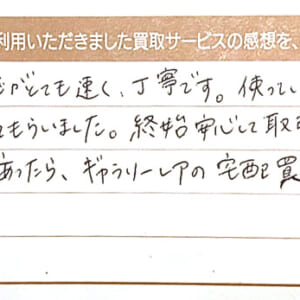 利用いただきました買取サービスの感想を、
がとても速く、丁寧です。使ってい
もらいました。終始安心して取
あったら、ギャラリーレアの宅配買